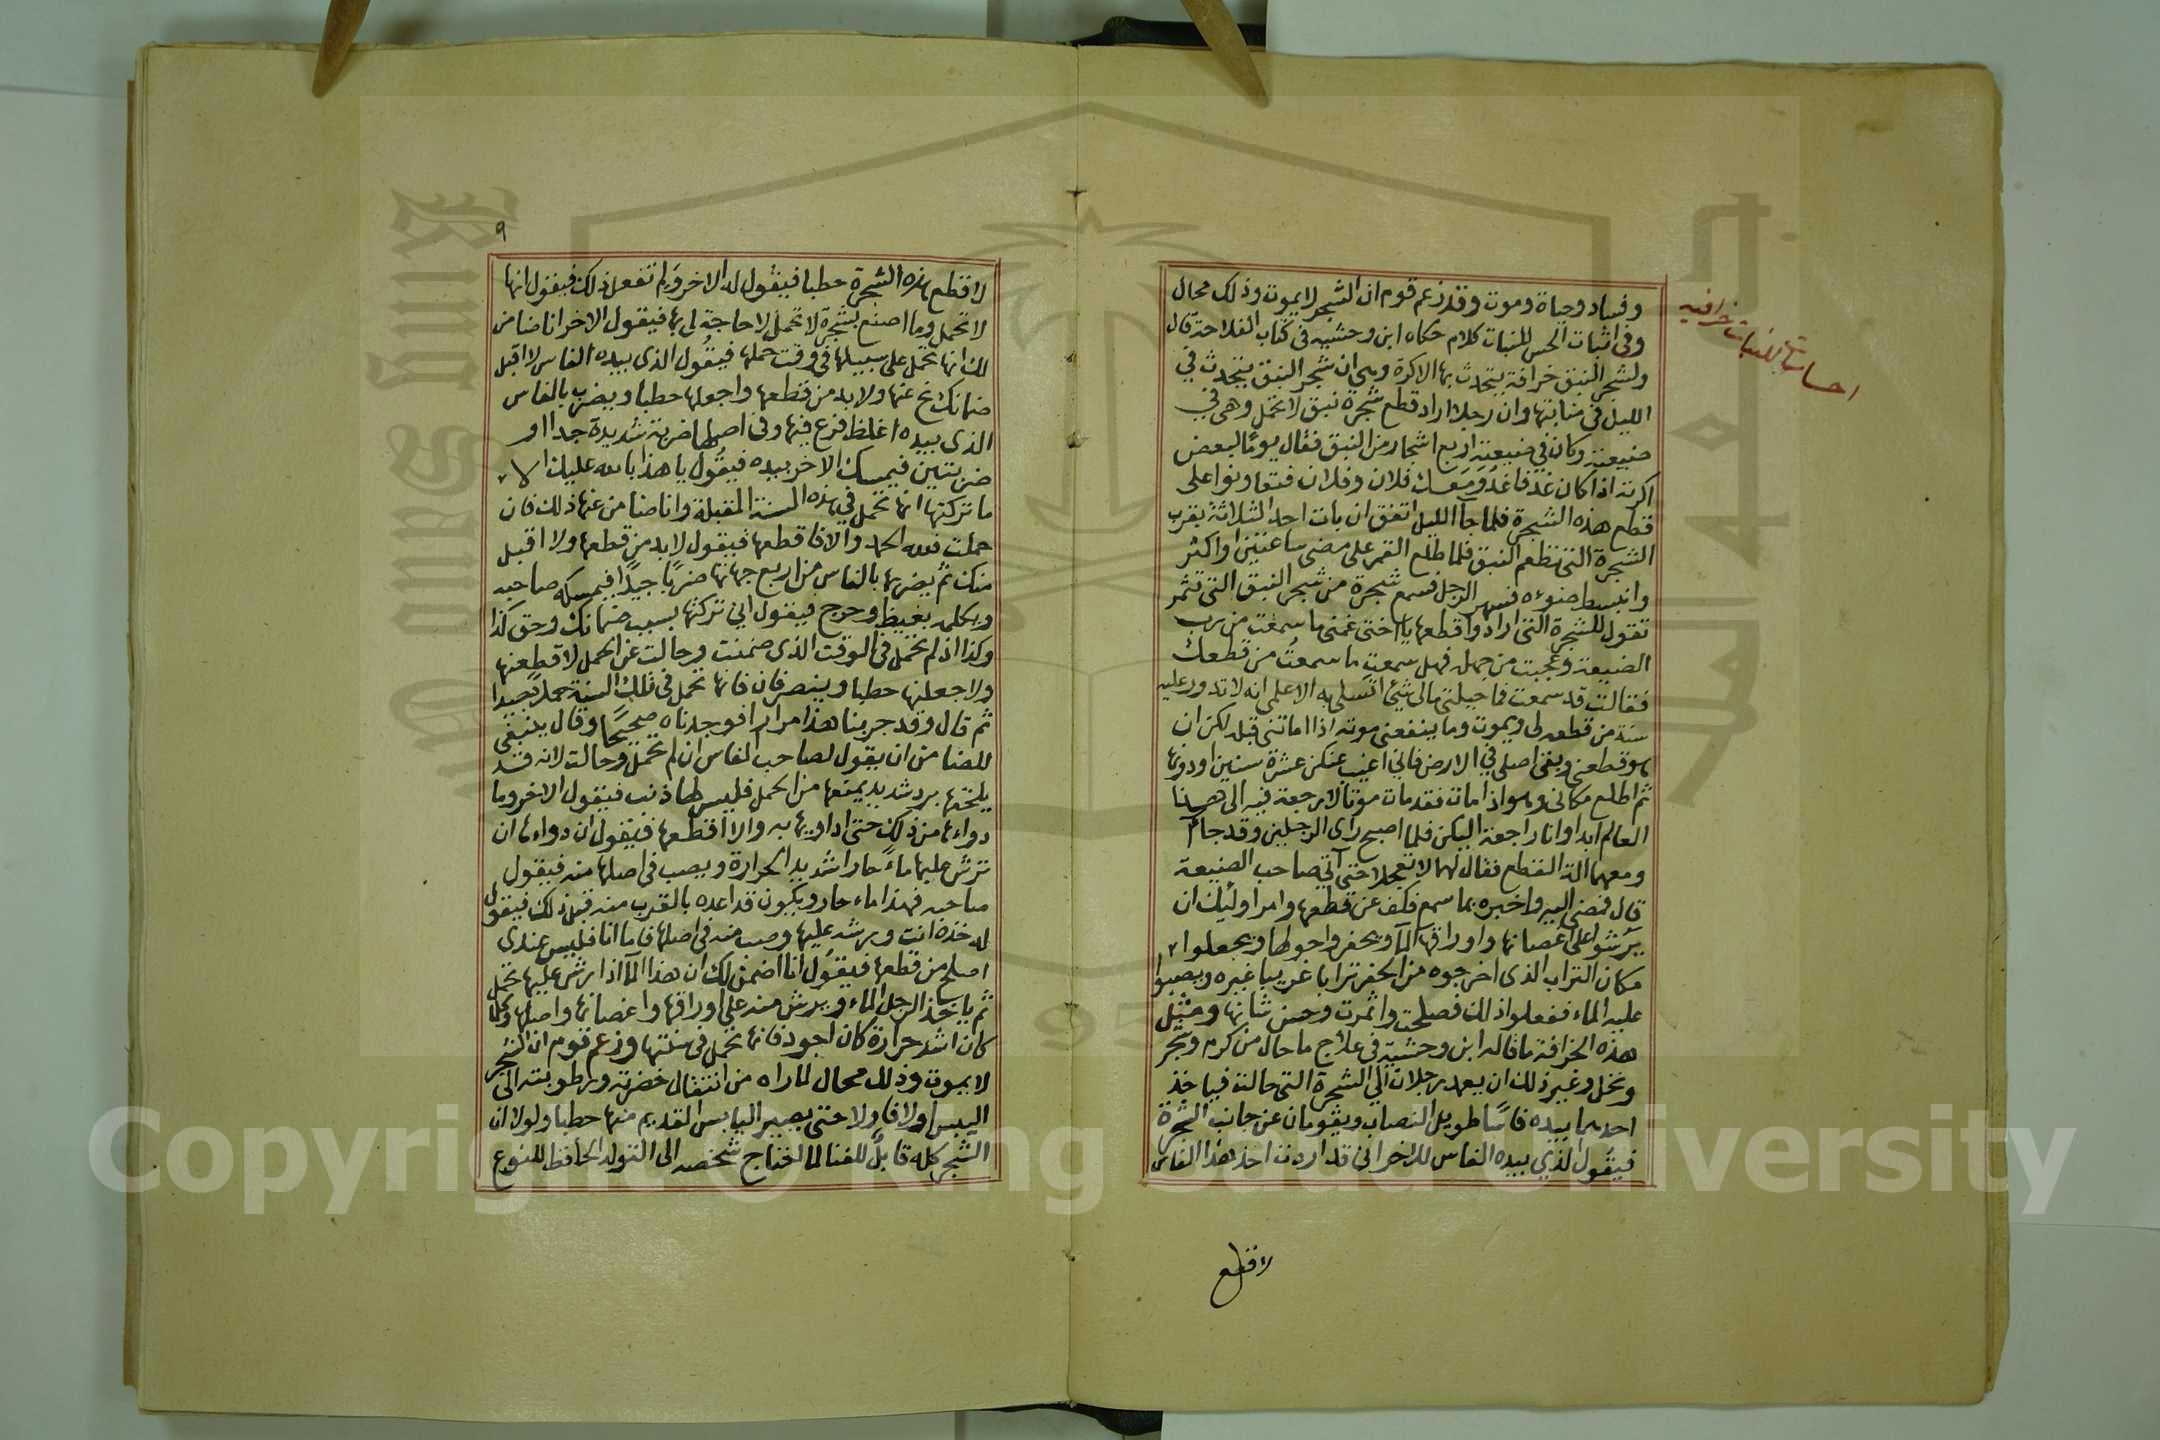 وفساد وحياة وموت وقد زعم قوم ان الشجر لا يموت وذلك محال
وفي اثبات الحس للنبات كلام حكاه ابن وحشيه في كتاب الفلاحة قال
ولشجر النبق خرافة يتحدث بها الاكرة وهي ان شجر النبق يتحدث في
الليل في منابتها وان رجلا اراد قطع شجرة نبق لا تحمل وهي في
ضيعته وكان في ضيعته اربع اشجار من النبق فقال يومًا لبعض
اكرته اذا كان غد فاغد ومعك فلان وفلان فتعاونوا على
قطع هذه الشجرة فلما جآ الليل اتفق ان بات احد الثلاثة بقرب
الشجرة التي تطعم النبق فلما طلع القمر على مضى ساعتين او اكثر
وانبسط ضوءه فسهر الرجل فسمع شجرة من شجر النبق التي تثمر
تقول للشجرة التي ارادوا قطعها يا اختي غمني ما سمعت من رب
الضيعة وعجبت من جهله فهل سمعتِ ما سمعتُ من قطعك
فقالت قد سمعت فما حيلتي مالي شئ اتسلى به الا علمي انه لا تدور عليه
سنة من قطعه لي ويموت وما ينفعني موته اذا اماتني قبله لكن ان
هو قطعني وبقي اصلي في الارض فاني اغيب عنكن عشرة سنين او دونها
ثم اطلع مكاني وهو اذا مات فقد مات موتا لا رجعة فيه الى هذا
العالم ابدا وانا راجعة اليكن فلما اصبح راى الرجلين وقد جاآ
ومعهما الة القطع فقال لهما لا تعجلا حتى آتي صاحب الضيعة
قال فمضى اليه واخبره بما سمع فكف عن قطعها وامر اولئك ان
يرشوا على اغصانها واوراقها المآ ويحفروا حولها ويجعلوا
مكان التراب الذي اخرجوه من الحفر ترابا غريبا غيره ويصبوا
عليه الماء ففعلوا ذلك فصلحت واثمرت وحسن شانها ومثل
هذه الخرافة ما قاله ابن وحشية في علاج ما حال من كرم وشجر
ونخل وغير ذلك ان يعمد رجلان الى الشجرة التي حالت فياخذ
احدهما بيده فاسًا طويل النصاب ويقومان عن جانب الشجرة
فيقول الذي بيده الفاس للاخر اني قد اردت اخذ هذا الفاس
لاقطع
احساسات للنباتات خرافيه
٩
لاقطع هذه الشجرة حطبا فيقول له الاخر ولم تفعل ذلك فيقول انها
لا تحمل وما اصنع بشجرة لا تحمل لا حاجة لي بها فيقول الاخر انا ضامن
لك انها تحمل على سبيلها في وقت حملها فيقُول الذي بيده الفاس لا اقبل
ضمانك نح عنها ولا بد من قطعها واجعلها حطبا ويضرب بالفاس
الذي بيده اغلظ فرع فيها وفي اصلها ضربة شديدة جدا او
ضربتين فيمسك الاخر بيده فيقُول يا هذا بالله عليك الا
ما تركتها انها تحمل في هذه السنة المقبلة وانا ضامن عنها ذلك فان
حملت فلله الحمد والا فاقطعها فيقول لا بد من قطعها ولا اقبل
منك ثم يضربها بالفاس من اربع جهاتها ضربًا جيدًا فيمسكه صاحبه
ويكلمه بغيظ وحرج فيقول اني تركتها بسبب ضمانك وحق كذا
وكذا اذ لم تحمل في الوقت الذي ضمنت وحالت عن الحمل لاقطعنها
ولاجعلنها حطبا وينصرفان فانها تحمل في تلك السنة حملا جيدا
ثم قال وقد جربنا هذا مرارا فوجدناه صحيحًا وقال ينبغي
للضامن ان يقول لصاحب الفاس ان لم تحمل وحالت لانه قد
يلحقها برد شديد يمنعها من الحمل فليس لها ذنب فيقول الاخر وما
دواءها من ذلك حتى اداويها به والا اقطعها فيقول ان دواءها ان
ترش عليها ماءً حارا شديد الحرارة ويصب في اصلها منه فيقول
صاحبه فهذا ماء حار ويكون قد اعده بالقرب منه قبل ذلك فيقول
له خذه انت ورشه عليها وصب منه في اصلها فاما انا فليس عندي
اصلح من قطعها فيقول انا اضمن لك ان هذا المآ اذا رش عليها تحمل
ثم ياخذ الرجل الماء ويرش منه على اوراقها واغصانها واصلها وكلما
كان اشد حرارة كان اجود فانها تحمل في سنتها وزعم قوم ان الشجر
لا يموت وذلك محال لما راه من انتقال خضرته ورطوبته الى
اليبس اولا فاولا حتى يصير اليابس القديم منها حطبا ولولا ان
الشجر كله قابل للفنا لما احتاج شخصه الى التولد الحافظ للنوع
Copyright © King Saud University